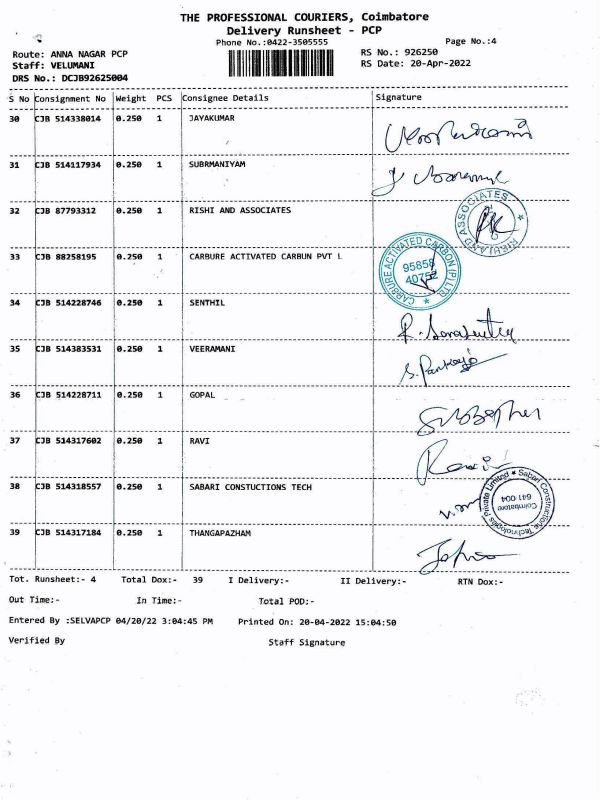 THE PROFESSIONAL COURIERS, Coimbatore
Delivery Runsheet - PCP
Phone No.:0422-3505555
Page No.:4
Route: ANNA NAGAR PCP
RS No.: 926250
Staff: VELUMANI
RS Date: 20-Apr-2022
DRS No.: DCJB92625004
S No Consignment No Weight PCS Consignee Details Signature
30 CJB 514338014 0.250 1 JAYAKUMAR
31 CJB 514117934 0.250 1 SUBRMANIYAM
32 CJB 87793312 0.250 1 RISHI AND ASSOCIATES
RISHI AND ASSOCIATES
33 CJB 88258195 0.250 1 CARBURE ACTIVATED CARBUN PVT L
CARBURE ACTIVATED CARBON (P) LTD
95858
40752
34 CJB 514228746 0.250 1 SENTHIL
35 CJB 514383531 0.250 1 VEERAMANI
S. Pankaj
36 CJB 514228711 0.250 1 GOPAL
37 CJB 514317602 0.250 1 RAVI
Ravi
38 CJB 514318557 0.250 1 SABARI CONSTUCTIONS TECH
Sabari Constructions Technologies Private Limited
Coimbatore
641 004
39 CJB 514317184 0.250 1 THANGAPAZHAM
Tot. Runsheet:- 4 Total Dox:- 39 I Delivery:- II Delivery:- RTN Dox:-
Out Time:- In Time:- Total POD:-
Entered By :SELVAPCP 04/20/22 3:04:45 PM Printed On: 20-04-2022 15:04:50
Verified By Staff Signature